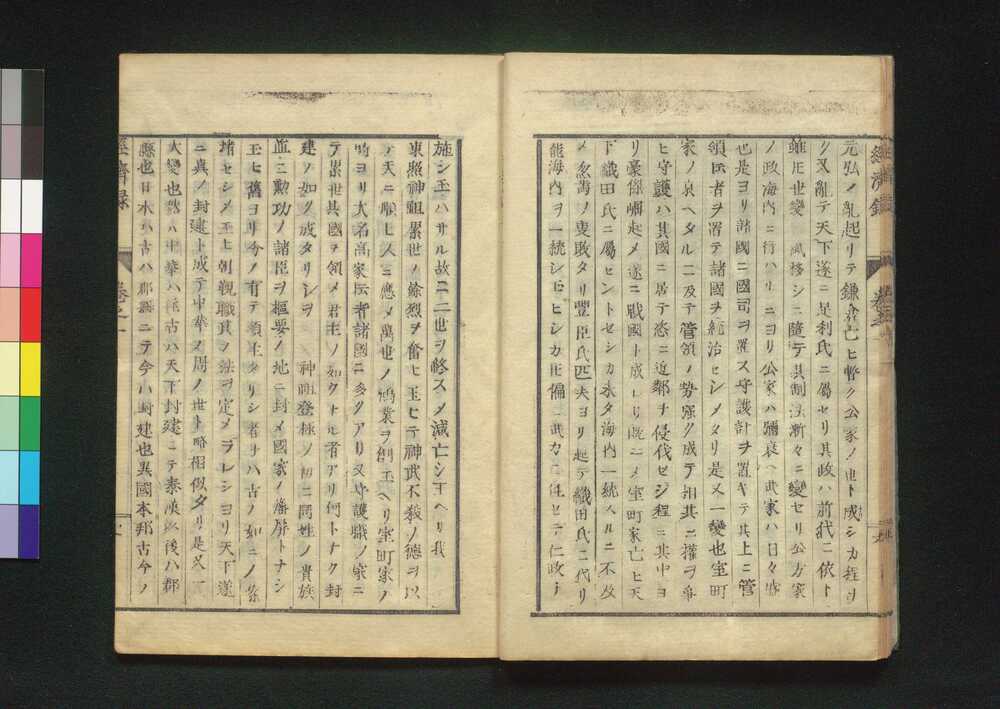 經濟録
卷之一
元弘ノ亂起リテ鎌倉亡ヒ暫ク公家ノ世ト成シカ程ヲ
ク又亂テ天下遂ニ足利氏ニ屬セリ其政ハ前代ニ依ト
雖𪜈世變風移シニ隨テ其制法漸々ニ變セリ公方家
ノ政海内ニ行ハリニヨリ公家ハ彌衰ヘ武家ハ日々ニ盛
也是ヨリ諸國ニ國司ヲ置ス守護計ヲ置キテ其上ニ管
領𪜈者ヲ置テ諸國ヲ統治セシメタリ是又一變也室町
家ノ衰ヘタルニ及テ管領ノ勢強ク成テ相共ニ權ヲ爭
ヒ守護ハ其國ニ居テ恣ニ近鄰ヲ侵伐セシ程ニ其中ヨ
リ豪傑崛起メ遂ニ戰國ト成レリ既ニメ室町家亡ヒ天
下織田氏ニ屬セントセシカ未タ海内一統スルニ不及
メ忽弑ノ裏敗タリ豐臣氏匹夫ヨリ起テ織田氏ニ代リ
能海内ヲ一統シ玉ヒシカ𪜈偏ニ武力ニ任セテ仁政ヲ
施シ玉ハサル故ニ二世ヲ終スメ滅亡シ玉ヘリ我
東照神祖累世ノ餘烈ヲ奮ヒ玉ヒテ神武不殺ノ德ヲ以
テ天ニ順ヒ人ニ應メ萬世ノ鴻業ヲ創玉ヘリ室町家ノ
時ヨリ大名高家𪜈者諸國ニ多クアリ又守護職ノ家ニ
テ累世其國ヲ領メ君主ノ如クナル者アリ何トナク封
建ノ如ク成タリシヲ 神祖登極ノ初ニ同姓ノ貴族
並ニ勲功ノ諸臣ヲ樞要ノ地ニ封メ國家ノ藩屏トナシ
玉ヒ舊ヨリ今ノ有テ領主タリシ者ヲハ古ノ如ニノ安
堵セシメ玉ヒ朝覲職貢ノ法ヲ定メラレシヨリ天下遂
ニ眞ノ封建ト成テ中華ノ周ノ世ト略相似タリ是又一
大變也然ハ中華ハ往古ハ天下封建ニテ秦漢以後ハ郡
縣也日本ハ古ハ郡縣ニテ今ハ封建也異國本邦古今ノ
經濟録
卷之一